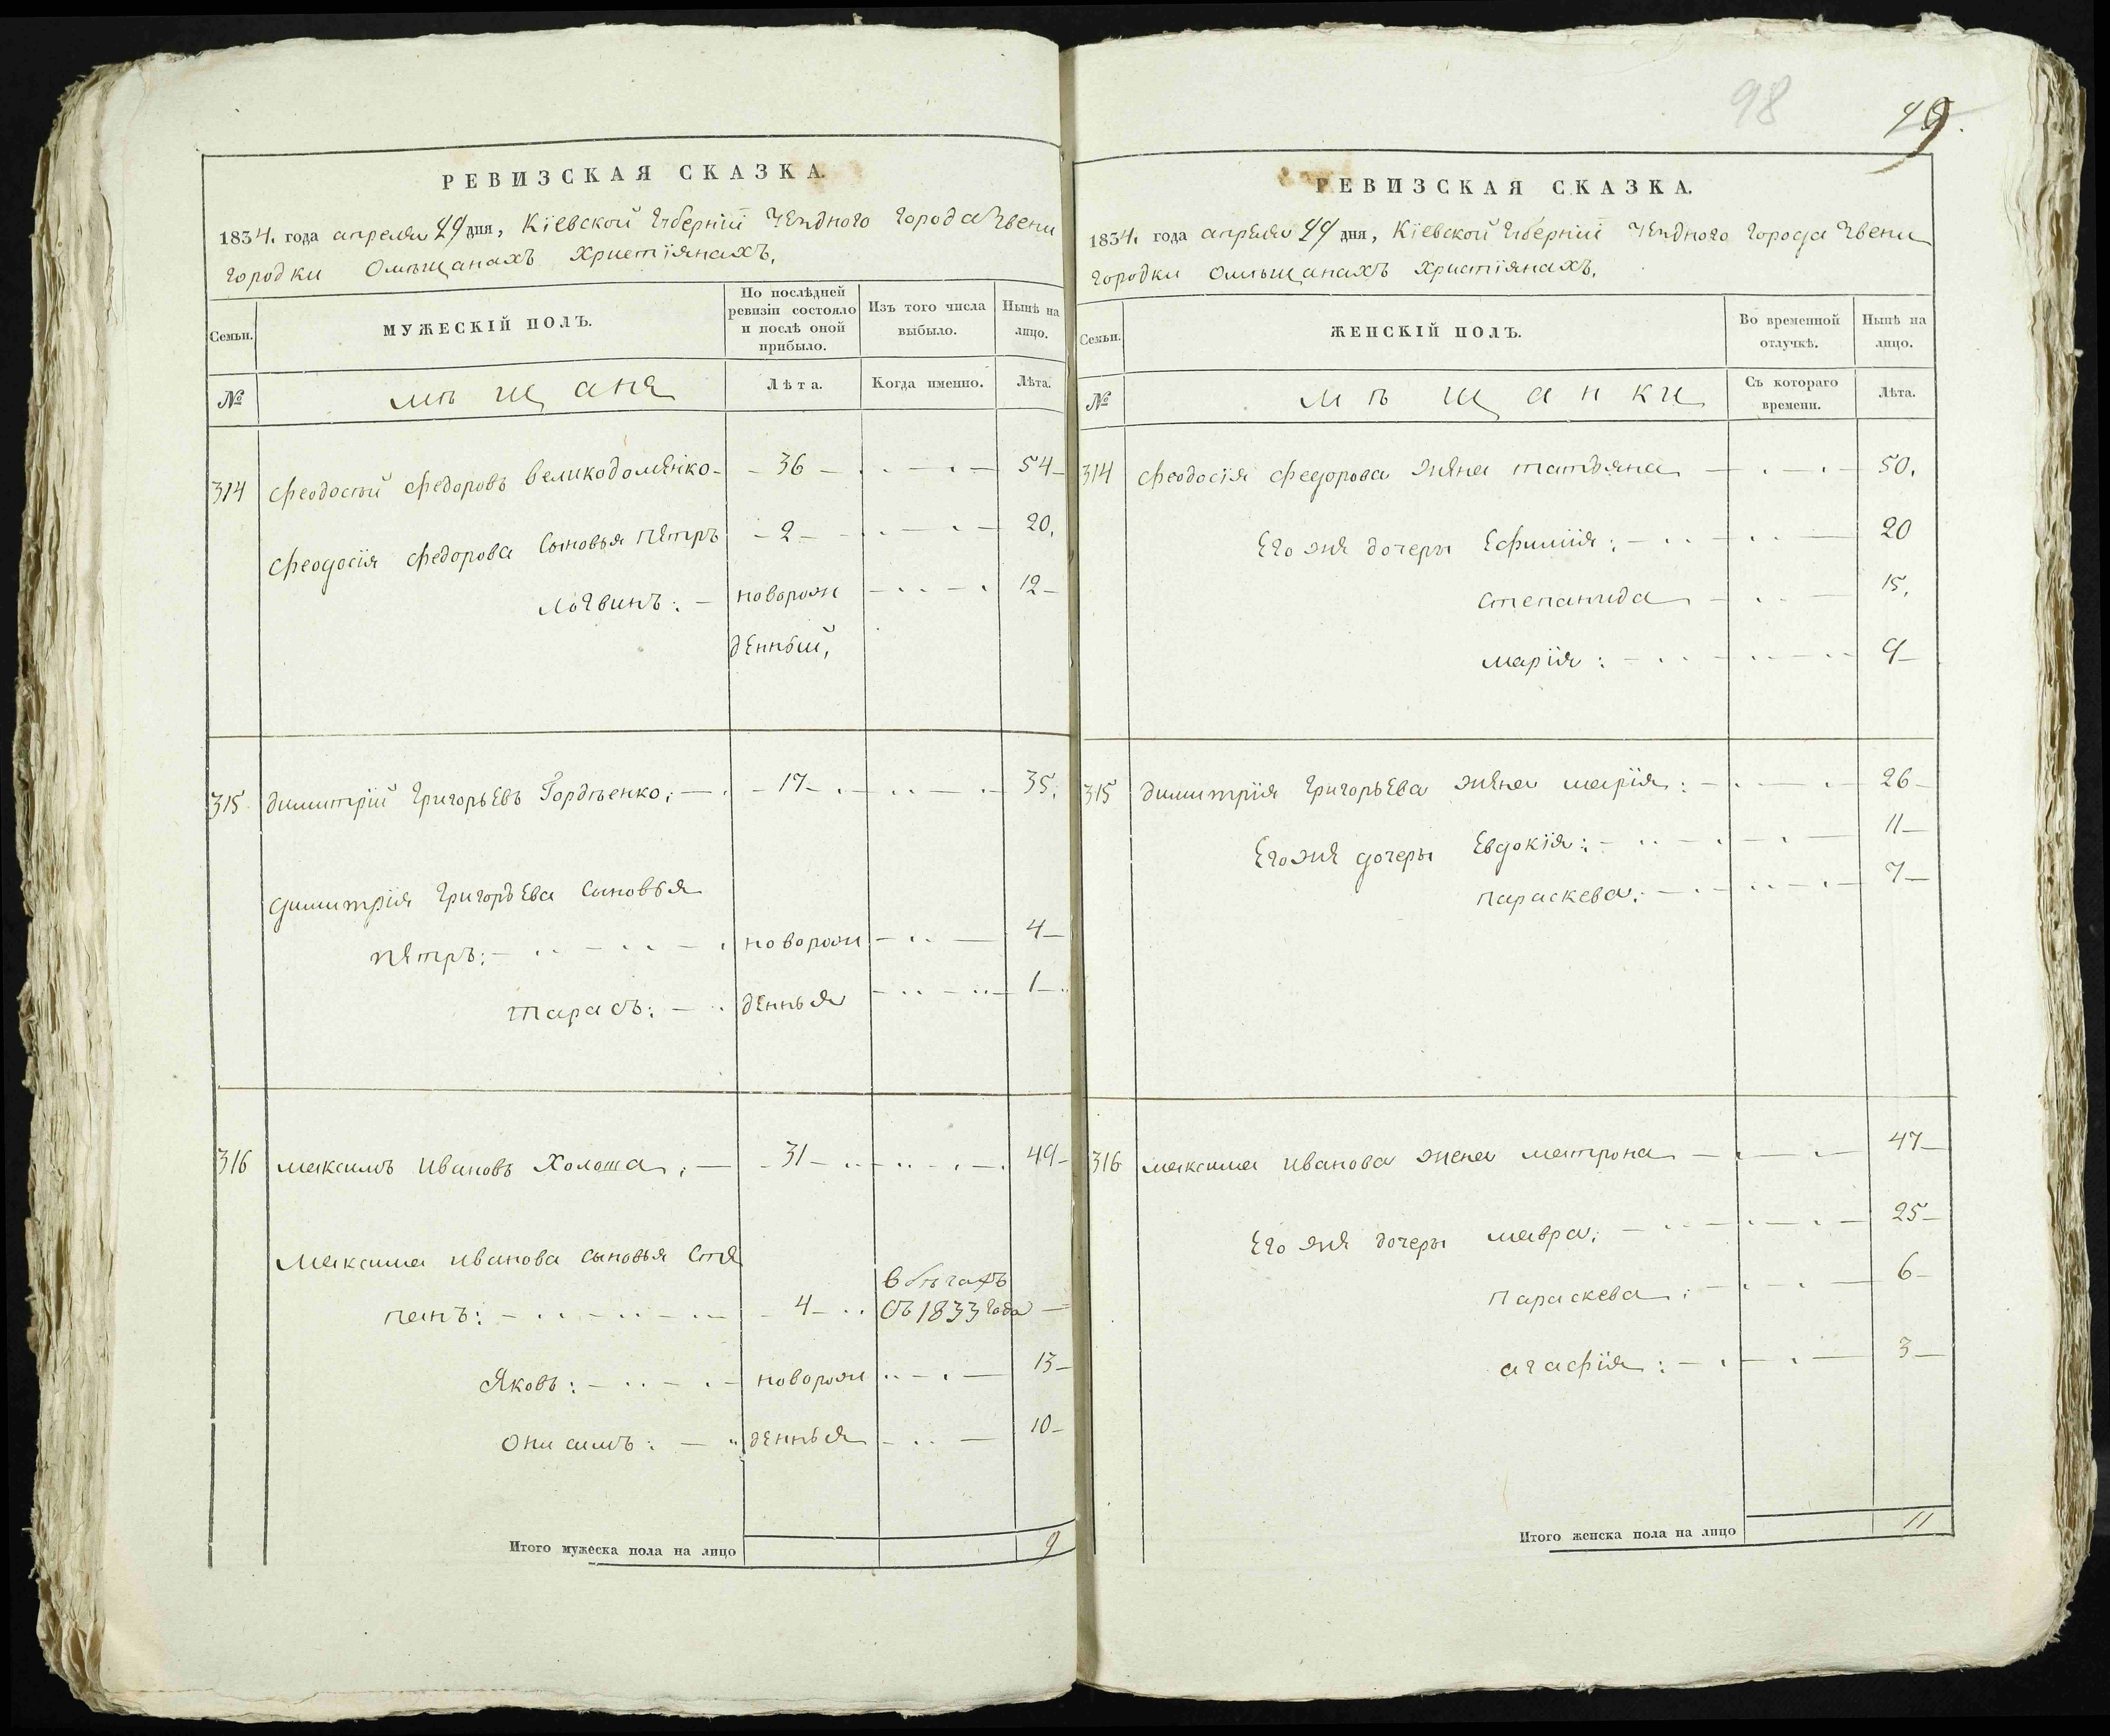 РЕВИЗСКАЯ СКАЗКА.
1834. года апреля 29 дня, Кіевской Губерніи Уезднаго города Звени
городки Омѣщанахъ Христіянахъ,
Семьи.
МУЖЕСКІЙ ПОЛЪ.
По послѣдней ревизіи состояло и послѣ оной прибыло.
Изъ того числа выбыло.
Нынѣ на лицо.
№
мѣщане
Лѣта.
Когда именно.
Лѣта.
314 Феодосій Федоровъ Великодоменко - 36 - 54
Феодосія Федорова Сыновья Петръ - 2 - 20.
Логвинъ: - новорож 12 -
денный,
315 Димитрій Григорьевъ Гордѣенко; - 17 - 35.
Димитрія Григорьева Сыновья
Петръ: - новорож 4 -
Тарасъ: - денныя 1 -
316 Максимъ Ивановъ Холоша; - 31 - 49 -
Максима Иванова сыновья Сте
панъ: - 4 - в бѣгахъ
съ 1833 года -
Яковъ: - новорож 13 -
Онисимъ: - денныя 10 -
Итого мужеска пола на лицо 9
98
99.
РЕВИЗСКАЯ СКАЗКА.
1834. года апреля 29 дня, Кіевской Губерніи Уезднаго города Звени
городки Омѣщанахъ Христіянахъ,
Семьи.
ЖЕНСКІЙ ПОЛЪ.
Во временной отлучкѣ.
Нынѣ на лицо.
№
мѣщанки
Съ котораго времени.
Лѣта.
314 Феодосія Федорова жена татьяна - 50.
Его же дочеры Ефимія: - 20
Степанида - 15.
Марія: - 9 -
315 Димитрія Григорьева жена марія: - 26 -
Его же дочеры Евдокія: - 11 -
Параскева: - 7 -
316 Максима Иванова жена матрона - 47 -
Его же дочеры мавра; - 25 -
Параскева: - 6 -
агафія: - 3 -
Итого женска пола на лицо 11